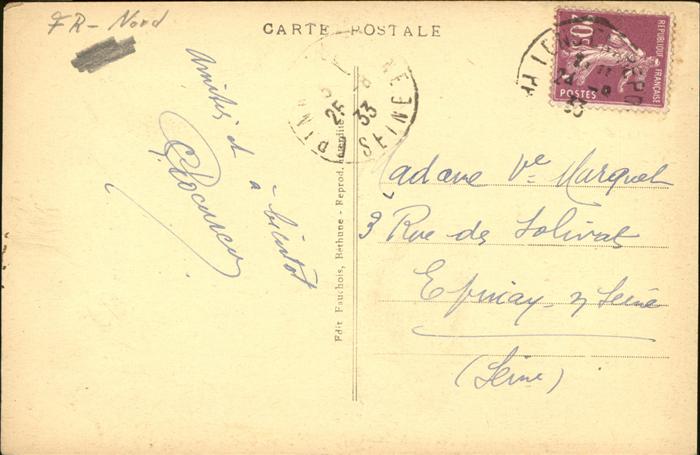 FR - Nord
CARTE POSTALE
Amitiés et à bientôt
Edit Fauchois, Béthune - Reprod. Interdite
RÉPUBLIQUE FRANÇAISE
POSTES
24 -8
33
25 -8
33
SEINE
Madame Vve Marquet
3 Rue de
Epinay s/ Seine
(Seine)